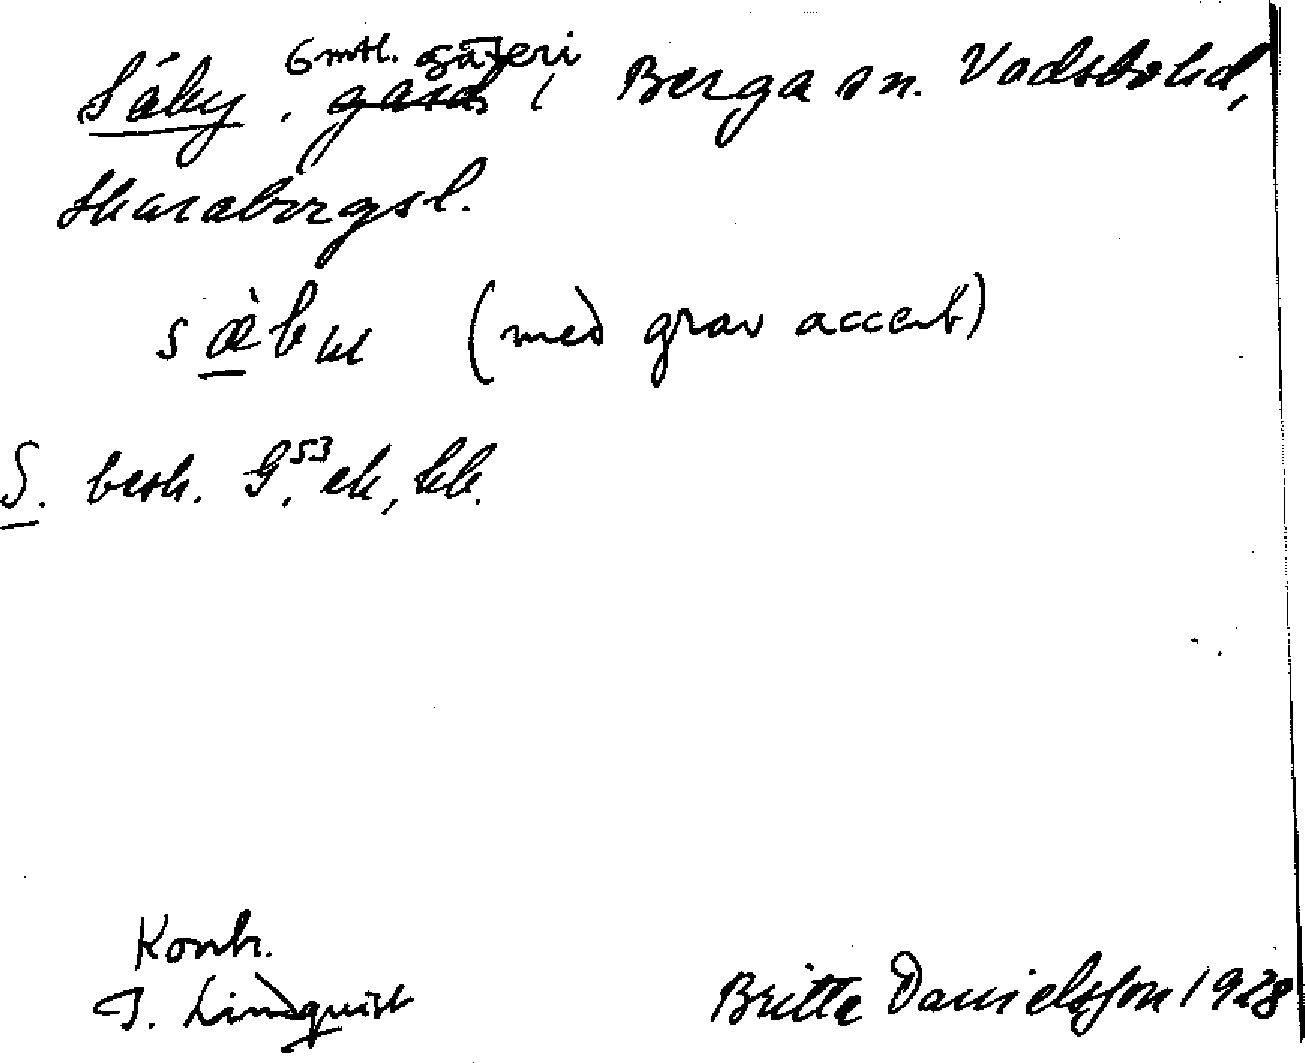 6 mtl. säteri
Säby, gård i Berga sn. Vadsbohd,
Skaraborgsl.
sæ̀bu (med grav accent)
S. besk. G.53 ek, kk.
Kontr.
I. Lindquist
Britta Danielsson 1928